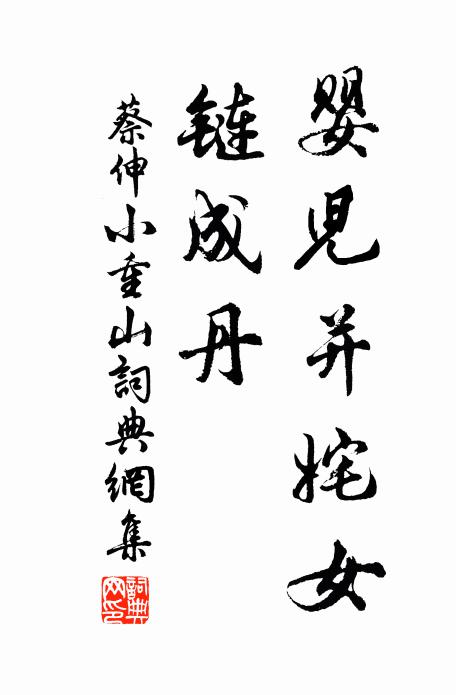 嬰兒并姹女
鏈成丹
蔡伸小重山詞典網集
詞典网印